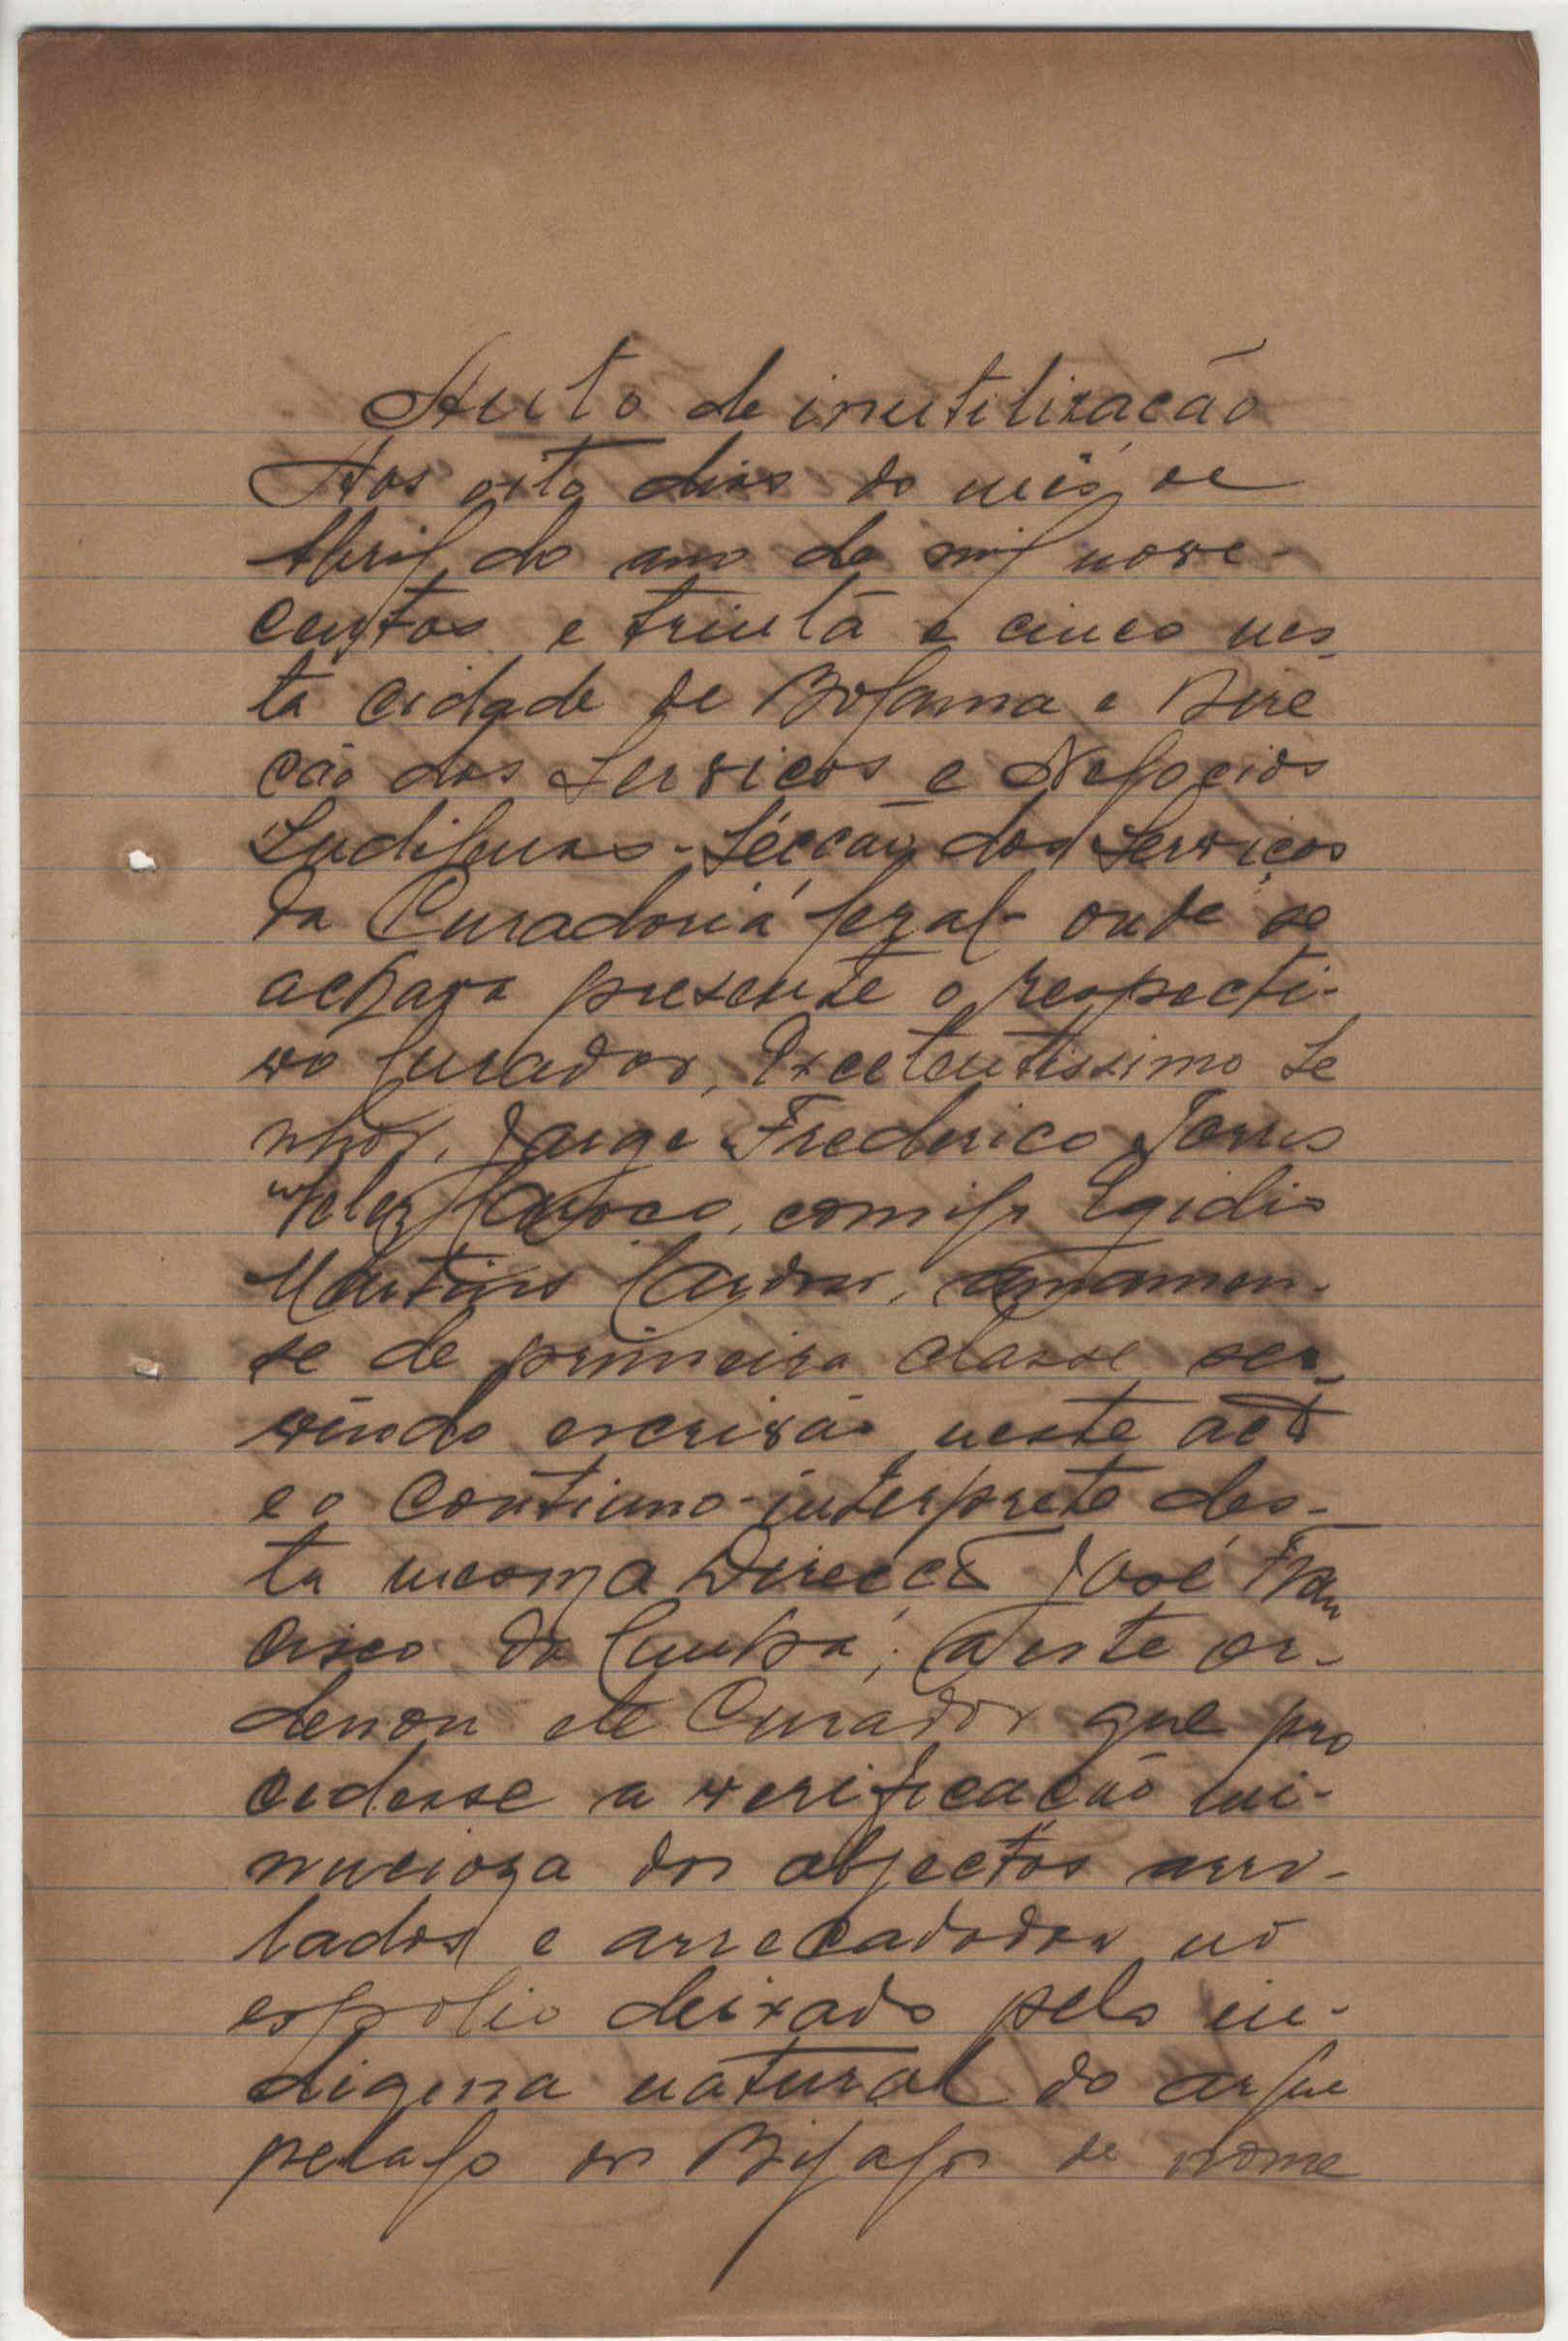 Auto de inutilização
Aos oito dias do mês de
Abril do ano de mil nove-
centos e trinta e cinco nes-
ta cidade de Bolama e Dire
ção dos Serviços e Negocios
Indigenas - Secção dos Serviços
da Curadoria Geral - onde se
achava presente o respecti-
vo Curador, Excelentissimo Se
nhor, Jorge Frederico Torres
Velez Caroço, comigo Egidio
Martins Cardoso, amanuen-
se de primeira classe ser-
vindo escrivão neste acto
e o Continuo-interprete des-
ta mesma Direcção José Fran
cisco da Cunha; a este or-
denou ele Curador que pro
cedesse a verificação mi-
nucioza dos objectos arro-
lados e arrecadados no
espolio deixado pelo in-
digena natural do arqui
pelago dos Bijagos de nome